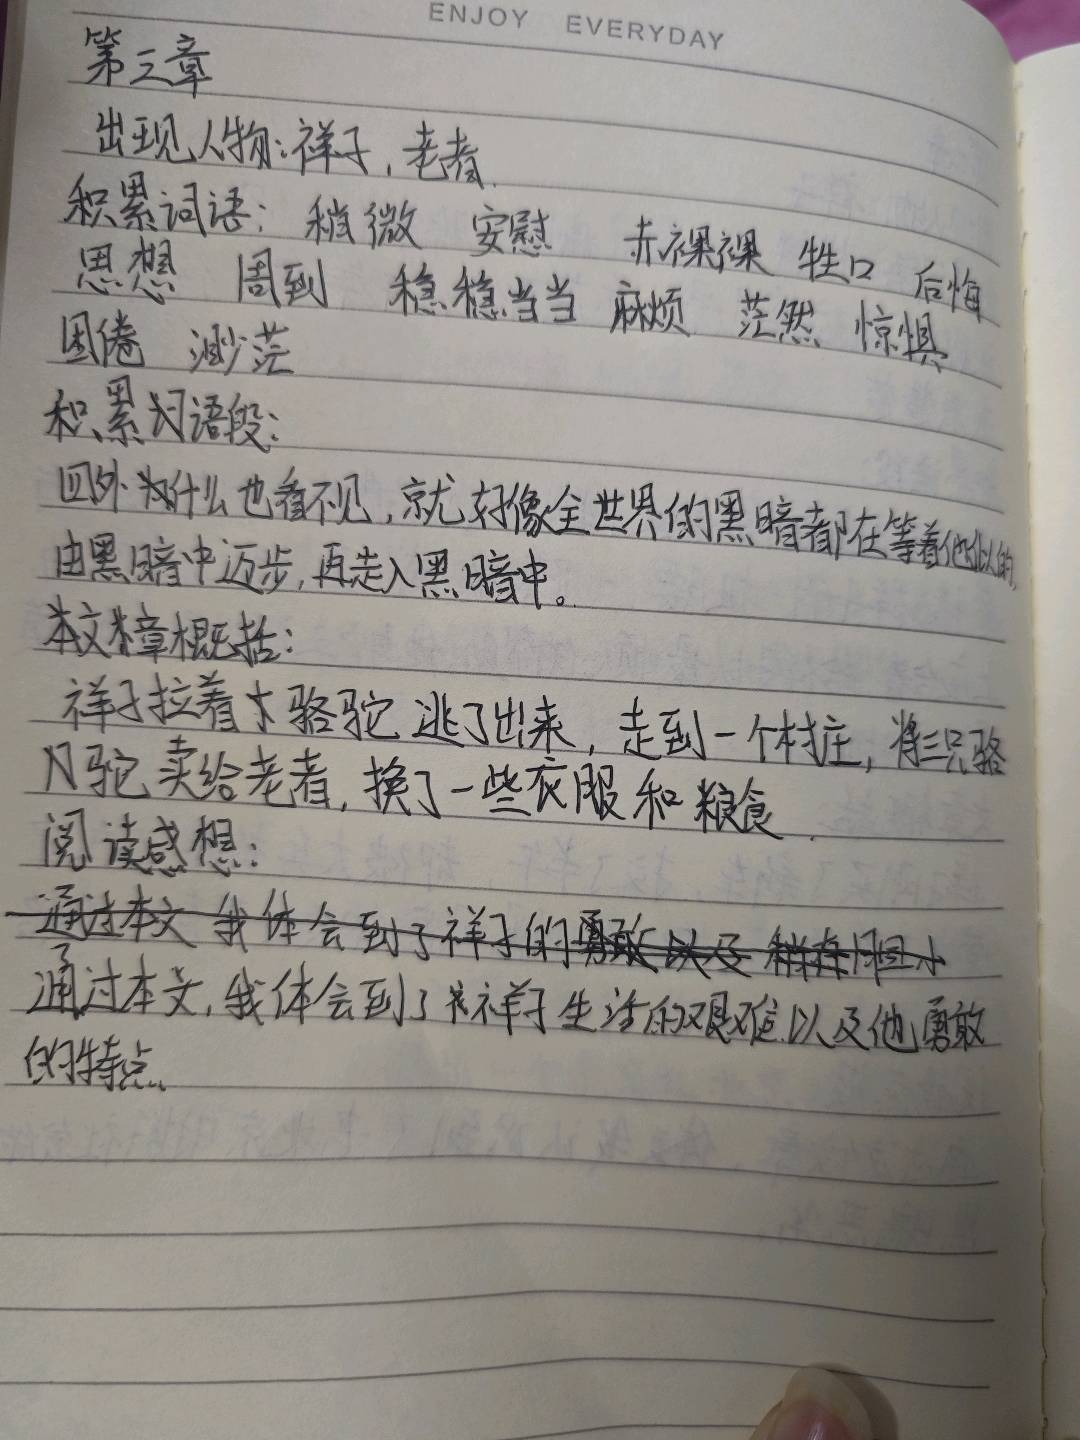 ENJOY EVERYDAY
第三章
出现人物:祥子,老者.
积累词语: 稍微 安慰 赤裸裸 牲口 后悔
思想 周到 稳稳当当 麻烦 茫然 惊惧
困倦 渺茫
积累词语段:
四外什么也看不见,就好像全世界的黑暗都在等着他似的,
由黑暗中迈步,再走入黑暗中。
本文章概括:
祥子拉着骆驼逃了出来,走到一个村庄,将三只骆
驼卖给老者,换了一些衣服和粮食.
阅读感想:
通过本文 我体会到了祥子的勇敢以及 胆小
通过本文,我体会到了祥子生活的艰难以及他勇敢
的特点.